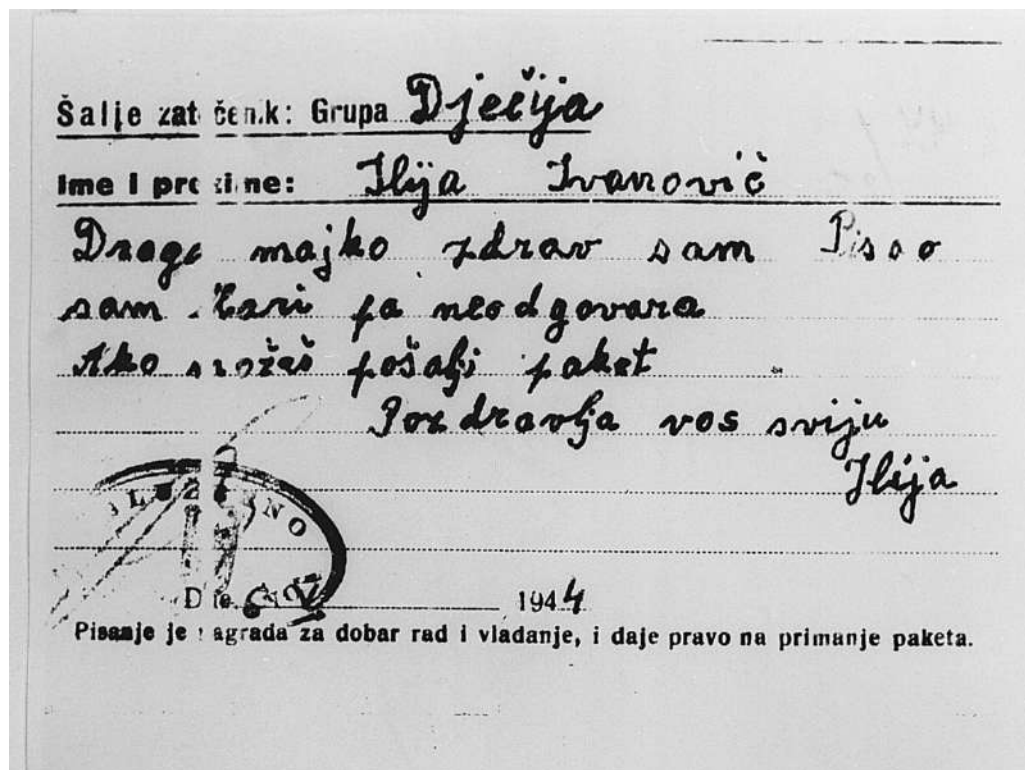 Šalje zatočenik: Grupa Dječija
Ime i prezime: Ilija Ivanović
Drага majko zdrav sam Pisao
sam Kari pa neodgovara
Ako možeš pošalji paket
Pozdravlja vas sviju
Ilija
Dne 1944
Pisanje je nagrada za dobar rad i vladanje, i daje pravo na primanje paketa.